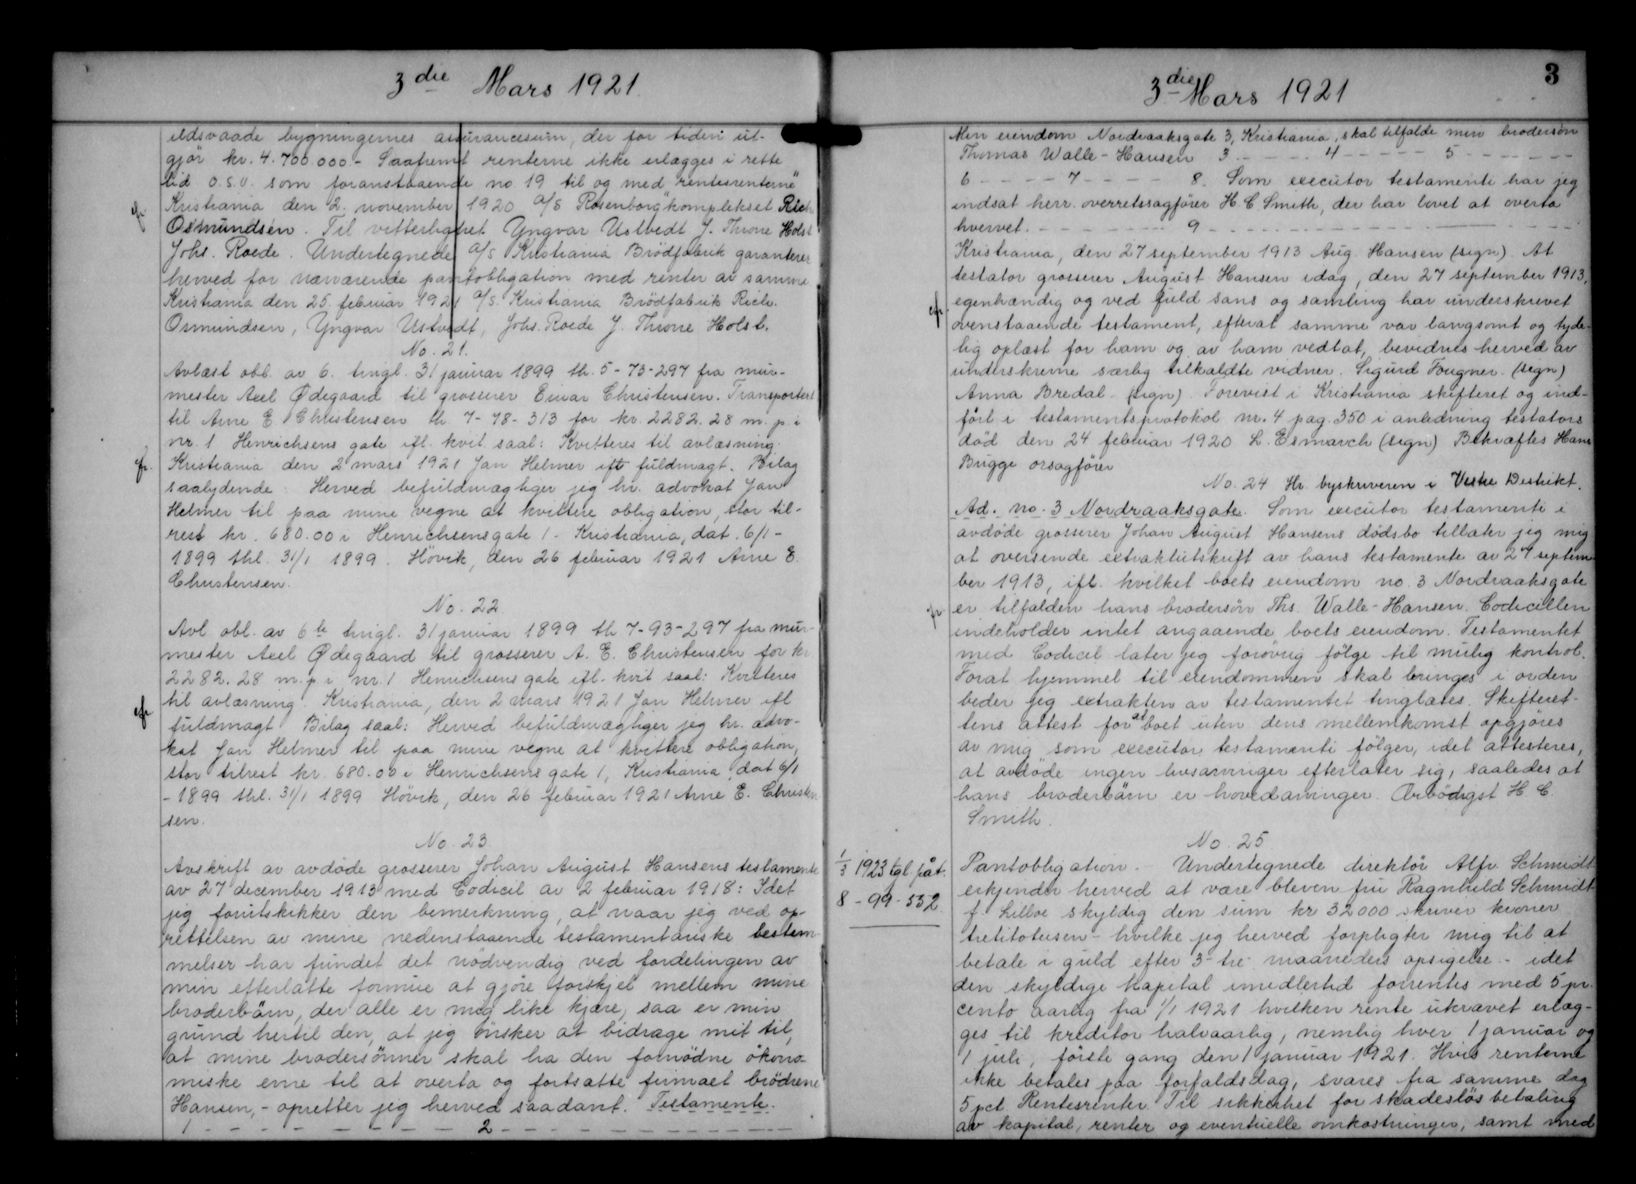 3die Mars 1921
ildsvaade bygningernes assurancesum, der for tiden ut-
gjør kr. 4.700.000.- Saafremt renterne ikke erlægges i rette
tid o.s.v. som foranstaaende no 19 til og med "rentesrenterne"
Kristiania den 2. november 1920 A/S "Rosenborg" komplekset Rich.
Osmundsen. Til vitterlighet Yngvar Ustvedt J. Throne Holst
Johs. Roede. Undertegnede A/S Kristiania Brödfabrik garanterer
herved for nærværende pantobligation med renter av samme
Kristiania den 25. februar 1921 A/S. Kristiania Brödfabrik Rich.
Osmundsen, Yngvar Ustvedt, Johs. Roede J. Throne Holst.
No. 21.
Avlæst obl. av 6. tingl. 31 januar 1899 th. 5-73-297 fra mur-
mester Axel Ødegaard til grosserer Einar Christensen. Transportert
til Arne E. Christensen th. 7-78-313 for kr. 2282.28 m. p. i
nr. 1 Henrichsens gate ifl. kvit. saal: Kvitteres til avlæsning.
Kristiania den 2 mars 1921 Jan Helmer ifl fuldmagt. Bilag
saalydende: Herved befuldmægtiger jeg hr. advokat Jan
Helmer til paa mine vegne at kvittere obligation, stor til-
rest kr. 680.00 i Henrichsensgate 1 - Kristiania, dat. 6/1 -
1899 thl. 31/1 1899. Hövik, den 26 februar 1921 Arne E.
Christensen.
No. 22
Avl obl. av 6te tingl. 31 januar 1899 th 7-93-297 fra mur-
mester Axel Ødegaard til grosserer A. E. Christensen for kr
2282.28 m. p. i nr. 1 Henrichsens gate ifl. kvit saal: Kvitteres
til avlæsning. Kristiania, den 2 mars 1921 Jan Helmer ifl
fuldmagt Bilag saal: Herved befuldmægtiger jeg hr. advo-
kat Jan Helmer til paa mine vegne at kvittere obligation,
stor tilrest kr. 680.00 i Henrichsens gate 1, Kristiania, dat 6/1
- 1899 thl. 31/1 1899 Hövik, den 26 februar 1921 Arne E. Christen-
sen.
No. 23
Avskrift av avdöde grosserer Johan August Hansens testamente
av 27 december 1913 med Codicil av 2 februar 1918: Idet
jeg forutskikker den bemerkning, at naar jeg ved op-
rettelsen av mine nedenstaaende testamentariske bestem-
melser har fundet det nödvendig ved fordelingen av
min efterlatte formue at gjöre forskjel mellem mine
broderbärn, der alle er mig like kjære, saa er min
grund hertil den, at jeg önsker at bidrage mit til,
at mine brodersönner skal ha den fornödne ökono-
miske evne til at overta og fortsætte firmaet brödrene
Hansen, - opretter jeg herved saadant. Testamente.
1 - - - - - - - 2 - - - - - - - -
3die Mars 1921
3
Min eiendom Nordraaksgate 3, Kristiania, skal tilfalde min brodersön
Thomas Walle-Hansen 3 - - - - - 4 - - - - - 5 - - - - - - -
6 - - - - 7 - - - - - 8. Som executor testamenti har jeg
indsat herr. overretssagförer H. C. Smith, der har lovet at overta
hvervet. - - - - - - - - 9 - - - - - - - - - -
Kristiania, den 27 september 1913 Aug. Hansen (sign). At
testator grosserer August Hansen idag, den 27 september 1913,
egenhændig og ved fuld sans og samling har underskrevet
ovenstaaende testament, efterat samme var langsomt og tyde-
lig oplæst for ham og av ham vedtat, bevidnes herved av
underskrevne særlig tilkaldte vidner. Sigurd Fougner. (sign)
Anna Bredal (sign). Forevist i Kristiania skifteret og ind-
fört i testamentsprotokol nr. 4 pag. 350 i anledning testators
död den 24 februar 1920 L. Esmarch (sign) Bekræftes Hans
Brügge orsagförer
No. 24 Hr. byskriveren i Vestre Distrikt.
Ad. no. 3 Nordraaksgate. Som executor testamenti i
avdöde grosserer Johan August Hansens dödsbo tillater jeg mig
at oversende extraktutskrift av hans testamente av 27 septem-
ber 1913, ifl. hvilket boets eiendom no. 3 Nordraaksgate
er tilfalden hans brodersön Ths. Walle-Hansen. Codicillen
indeholder intet angaaende boets eiendom. Testamentet
med Codicil later jeg forövrig fölge til mulig kontrol.
Forat hjemmel til eiendommen skal bringes i orden
beder jeg extrakten av testamentet tinglæses. Skifteret-
tens attest for at boet uten dens mellemkomst opgjöres
av mig som executor testamenti fölger, idet attesteres,
at avdöde ingen livsarvinger efterlater sig, saaledes at
hans broderbärn er hovedarvinger. Ærbödigst H. C.
Smith.
No. 25
1/3 1923 tgl påt.
8-99-552
Pantobligation. - Undertegnede direktör Alfr. Schmidt
erkjender herved at være bleven fru Ragnhild Schmidt
f. Lilloe skyldig den sum kr 32000 skriver kroner
trettitotusen - hvilke jeg herved forpligter mig til at
betale i guld efter 3-tre maaneders opsigelse - idet
den skyldige kapital imidlertid forrentes med 5 pr.
cento aarlig fra 1/1 1921 hvilken rente ukrævet erlæg-
ges til kreditor halvaarlig, nemlig hver 1 januar og
1 juli, förste gang den 1 januar 1921. Hvis renterne
ikke betales paa forfaldsdag, svares fra samme dag
5 pct. Rentesrenter. Til sikkerhet for skadeslös betaling
av kapital, renter og eventuelle omkostninger, samt med